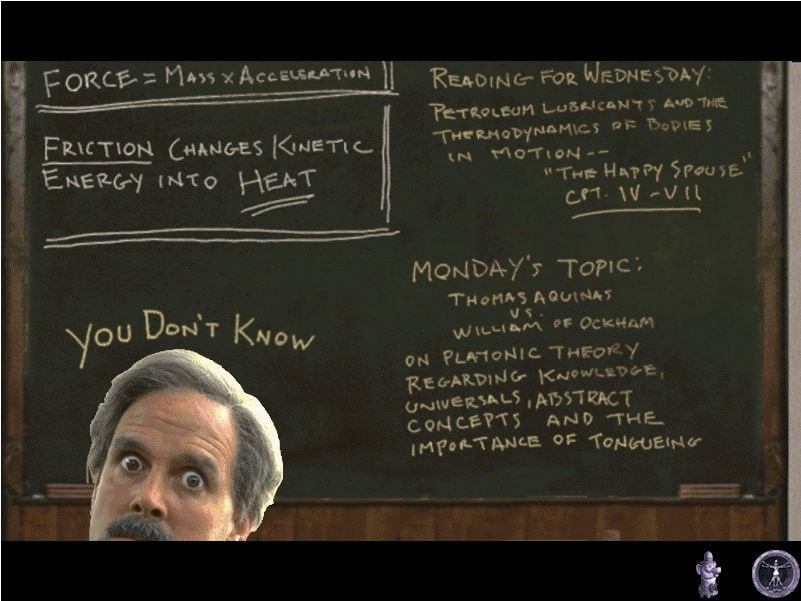 FORCE = MASS X ACCELERATION
FRICTION CHANGES KINETIC
ENERGY INTO HEAT
YOU DON'T KNOW
READING FOR WEDNESDAY:
PETROLEUM LUBRICANTS AND THE
THERMODYNAMICS OF BODIES
IN MOTION--
"THE HAPPY SPOUSE"
CPT. IV-VII
MONDAY'S TOPIC:
THOMAS AQUINAS
VS.
WILLIAM OF OCKHAM
ON PLATONIC THEORY
REGARDING KNOWLEDGE,
UNIVERSALS, ABSTRACT
CONCEPTS AND THE
IMPORTANCE OF TONGUEING